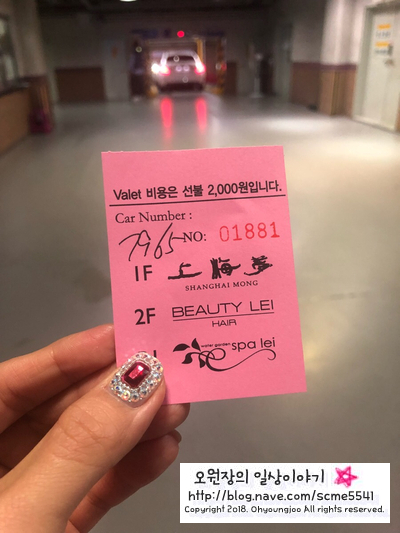 Valet 비용은 선불 2,000원입니다.
Car Number :
7965 NO: 01881
1F 上海夢
SHANGHAI MONG
2F BEAUTY LEI
HAIR
water garden
spa lei
오원장의 일상이야기
http://blog.nave.com/scme5541
Copyright 2018. Ohyoungjoo All rights reserved.